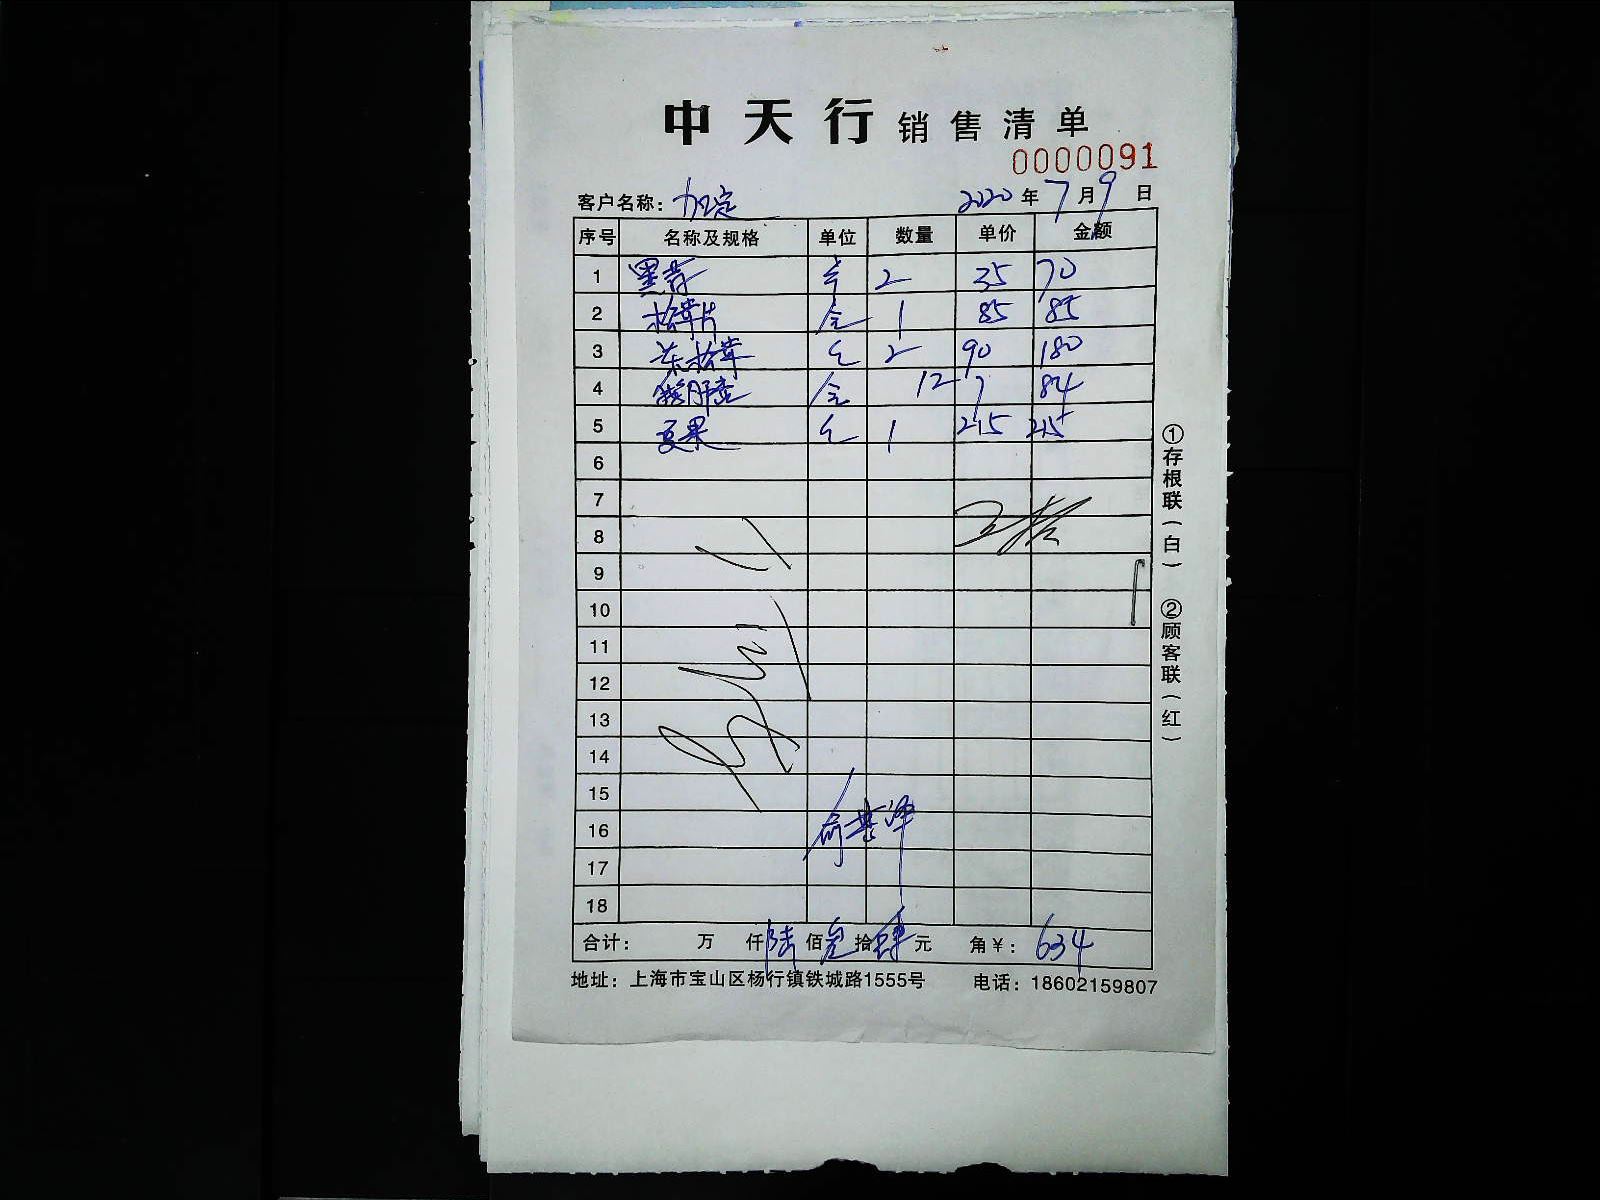 中天行 销售清单
0000091
客户名称: 2020年7月9日
序号 名称及规格 单位 数量 单价 金额
1 2 35 70
2 松茸片 1 85 85
3 松茸 2 90 180
4 12 7 84
5 1 215 215
6
7
8
9
10
11
12
13
14
15
16
17
18
合计: 万 仟陆佰叁拾肆元 角¥: 634
地址: 上海市宝山区杨行镇铁城路1555号 电话: 18602159807
①存根联(白) ②顾客联(红)